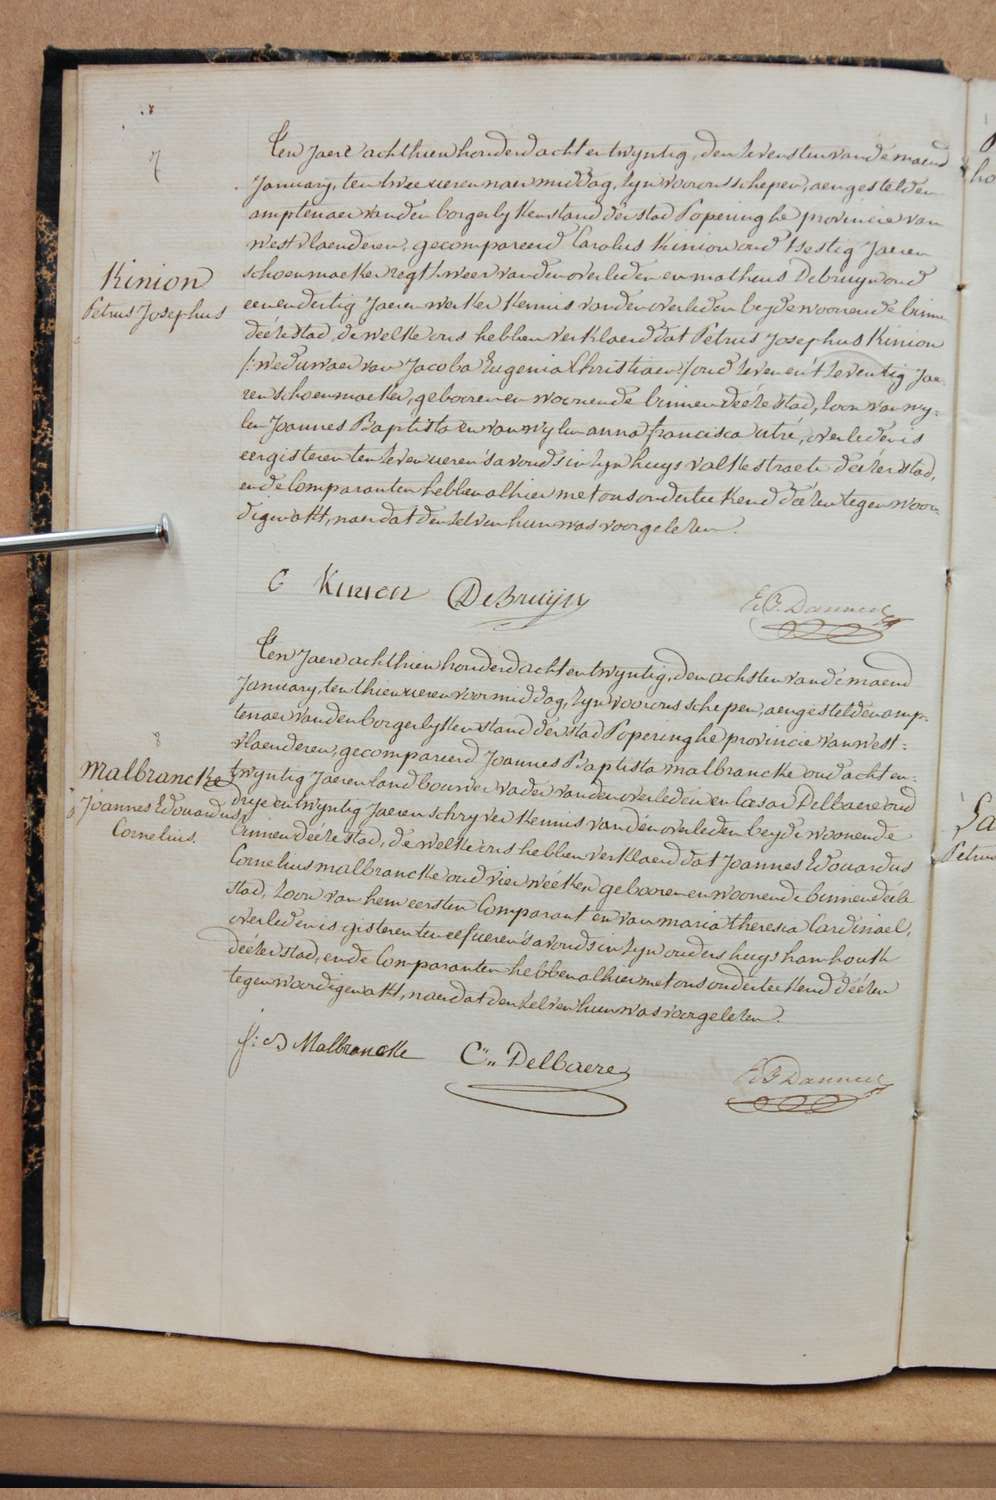 7
Kinion
Petrus Josephus
Ten Jaere achthien honderd acht en twyntig, den zevensten van dé maend
January, ten twee ueren naer middag, zyn voor ons schepen, aengestelden
amptenaer van den borgerlyken stand dér stad Poperinghe provincie van
westvlaenderen, gecompareerd Carolus Kinion oud tsestig Jaeren
schoenmaeker regtsweer van den overleden en matheus Debruyn oud
eenendertig Jaeren werker kennis van den overleden beyde woonende binnen
déése stad, de welke ons hebben verklaerd dat Petrus Josephus Kinion
/: weduwaer van Jacoba Eugenia Christiaen :/ oud zeven en 't zeventig Jae-
ren schoenmaeker, gebooren en woonende binnen déése stad, zoon van wy-
len Joannes Baptista en van wylen anna francisca utré, overleden is
eergisteren ten zeven ueren 's avonds in zyn huys valkestraete déézer stad,
en de Comparanten hebben alhier met ons onderteekend déézen tegenwoor-
digen akt, naer dat den zelven hun was voorgelezen.
C Kinion DeBruyn
8
Malbrancke
Joannes Edouardus
Cornelius.
Ten Jaere achthien honderd acht en twyntig, den achsten van dé maend
January, ten thien ueren voormiddag, zyn voor ons schepen, aengestelden amp-
tenaer van den borgerlyken stand dér stad Poperinghe provincie van west-
vlaenderen, gecompareerd Joannes Baptista malbrancke oud acht en-
twyntig Jaeren landbouwer vader van den overleden en Cesar Delbaere oud
drye en twyntig Jaeren schryver kennis van dén overleden beyde woonende
binnen déése stad, dé welke ons hebben verklaerd dat Joannes Edouardus
Cornelius malbrancke oud vier wééken gebooren en woonende binnen déése
stad, zoon van hem eersten Comparant en van maria theresia Cardinael,
overleden is gisteren ten elf ueren 's avonds in zyn ouders huys hamhouck
déézer stad, en de Comparanten hebben alhier met ons onderteekend déézen
tegenwoordigen akt, naer dat den zelven hun was voorgelezen.
j: B Malbrancke C.. Delbaere